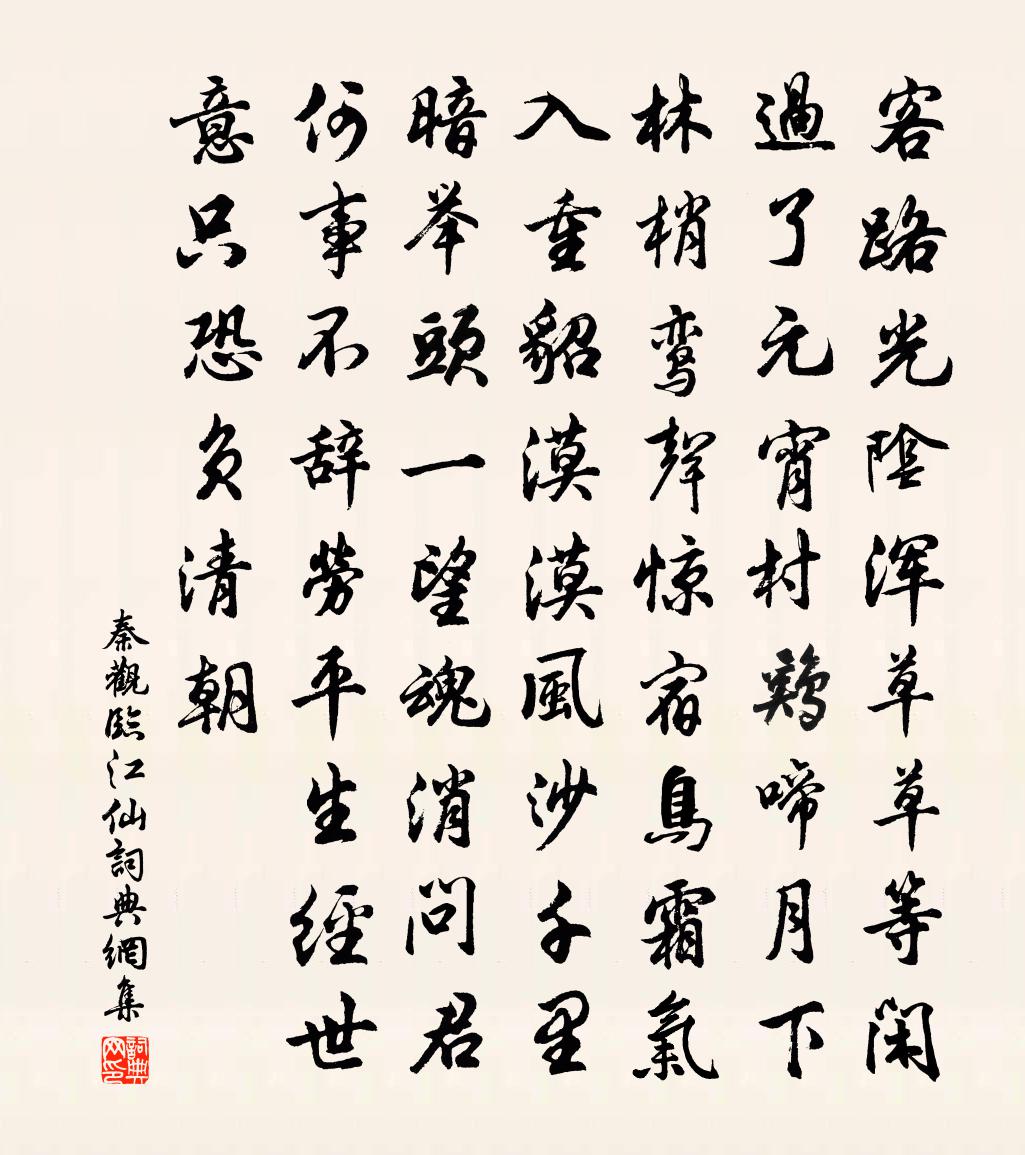 客路光陰浑草草等闲
過了元宵村鷄啼月下
林梢鸾聲惊宿鳥霜氣
入重貂漠漠風沙千里
暗举頭一望魂消问君
何事不辞勞平生經世
意只恐负清朝
秦觀臨江仙詞典網集
詞典网印